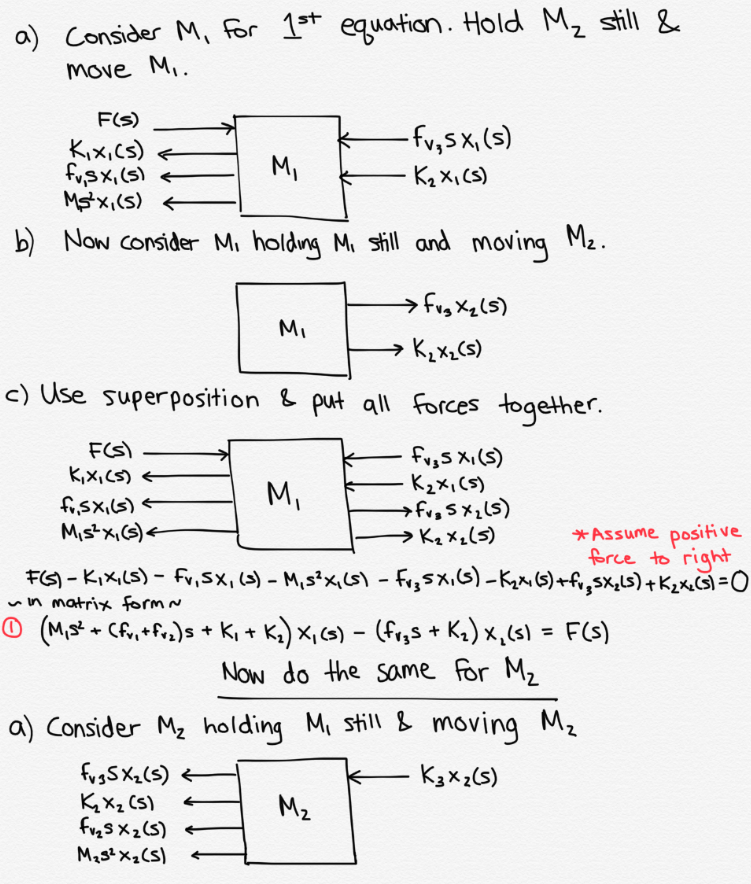 a) Consider M₁ for 1st equation. Hold M₂ still &
move M₁.
F(s)
K₁X₁(s)
fv₁sX₁(s)
M₁s²X₁(s)
M₁
fv₃sX₁(s)
K₂X₁(s)
b) Now consider M₁ holding M₁ still and moving M₂.
M₁
fv₃X₂(s)
K₂X₂(s)
c) Use superposition & put all forces together.
F(s)
K₁X₁(s)
fv₁sX₁(s)
M₁s²X₁(s)
M₁
fv₃sX₁(s)
K₂X₁(s)
fv₃sX₂(s)
K₂X₂(s)
*Assume positive
force to right
F(s) - K₁X₁(s) - fv₁sX₁(s) - M₁s²X₁(s) - fv₃sX₁(s) - K₂X₁(s) + fv₃sX₂(s) + K₂X₂(s) = 0
~ in matrix form ~
① (M₁s² + (fv₁+fv₂)s + K₁ + K₂) X₁(s) - (fv₃s + K₂) X₂(s) = F(s)
Now do the same for M₂
a) Consider M₂ holding M₁ still & moving M₂
fv₃sX₂(s)
K₂X₂(s)
fv₂sX₂(s)
M₂s²X₂(s)
M₂
K₃X₂(s)